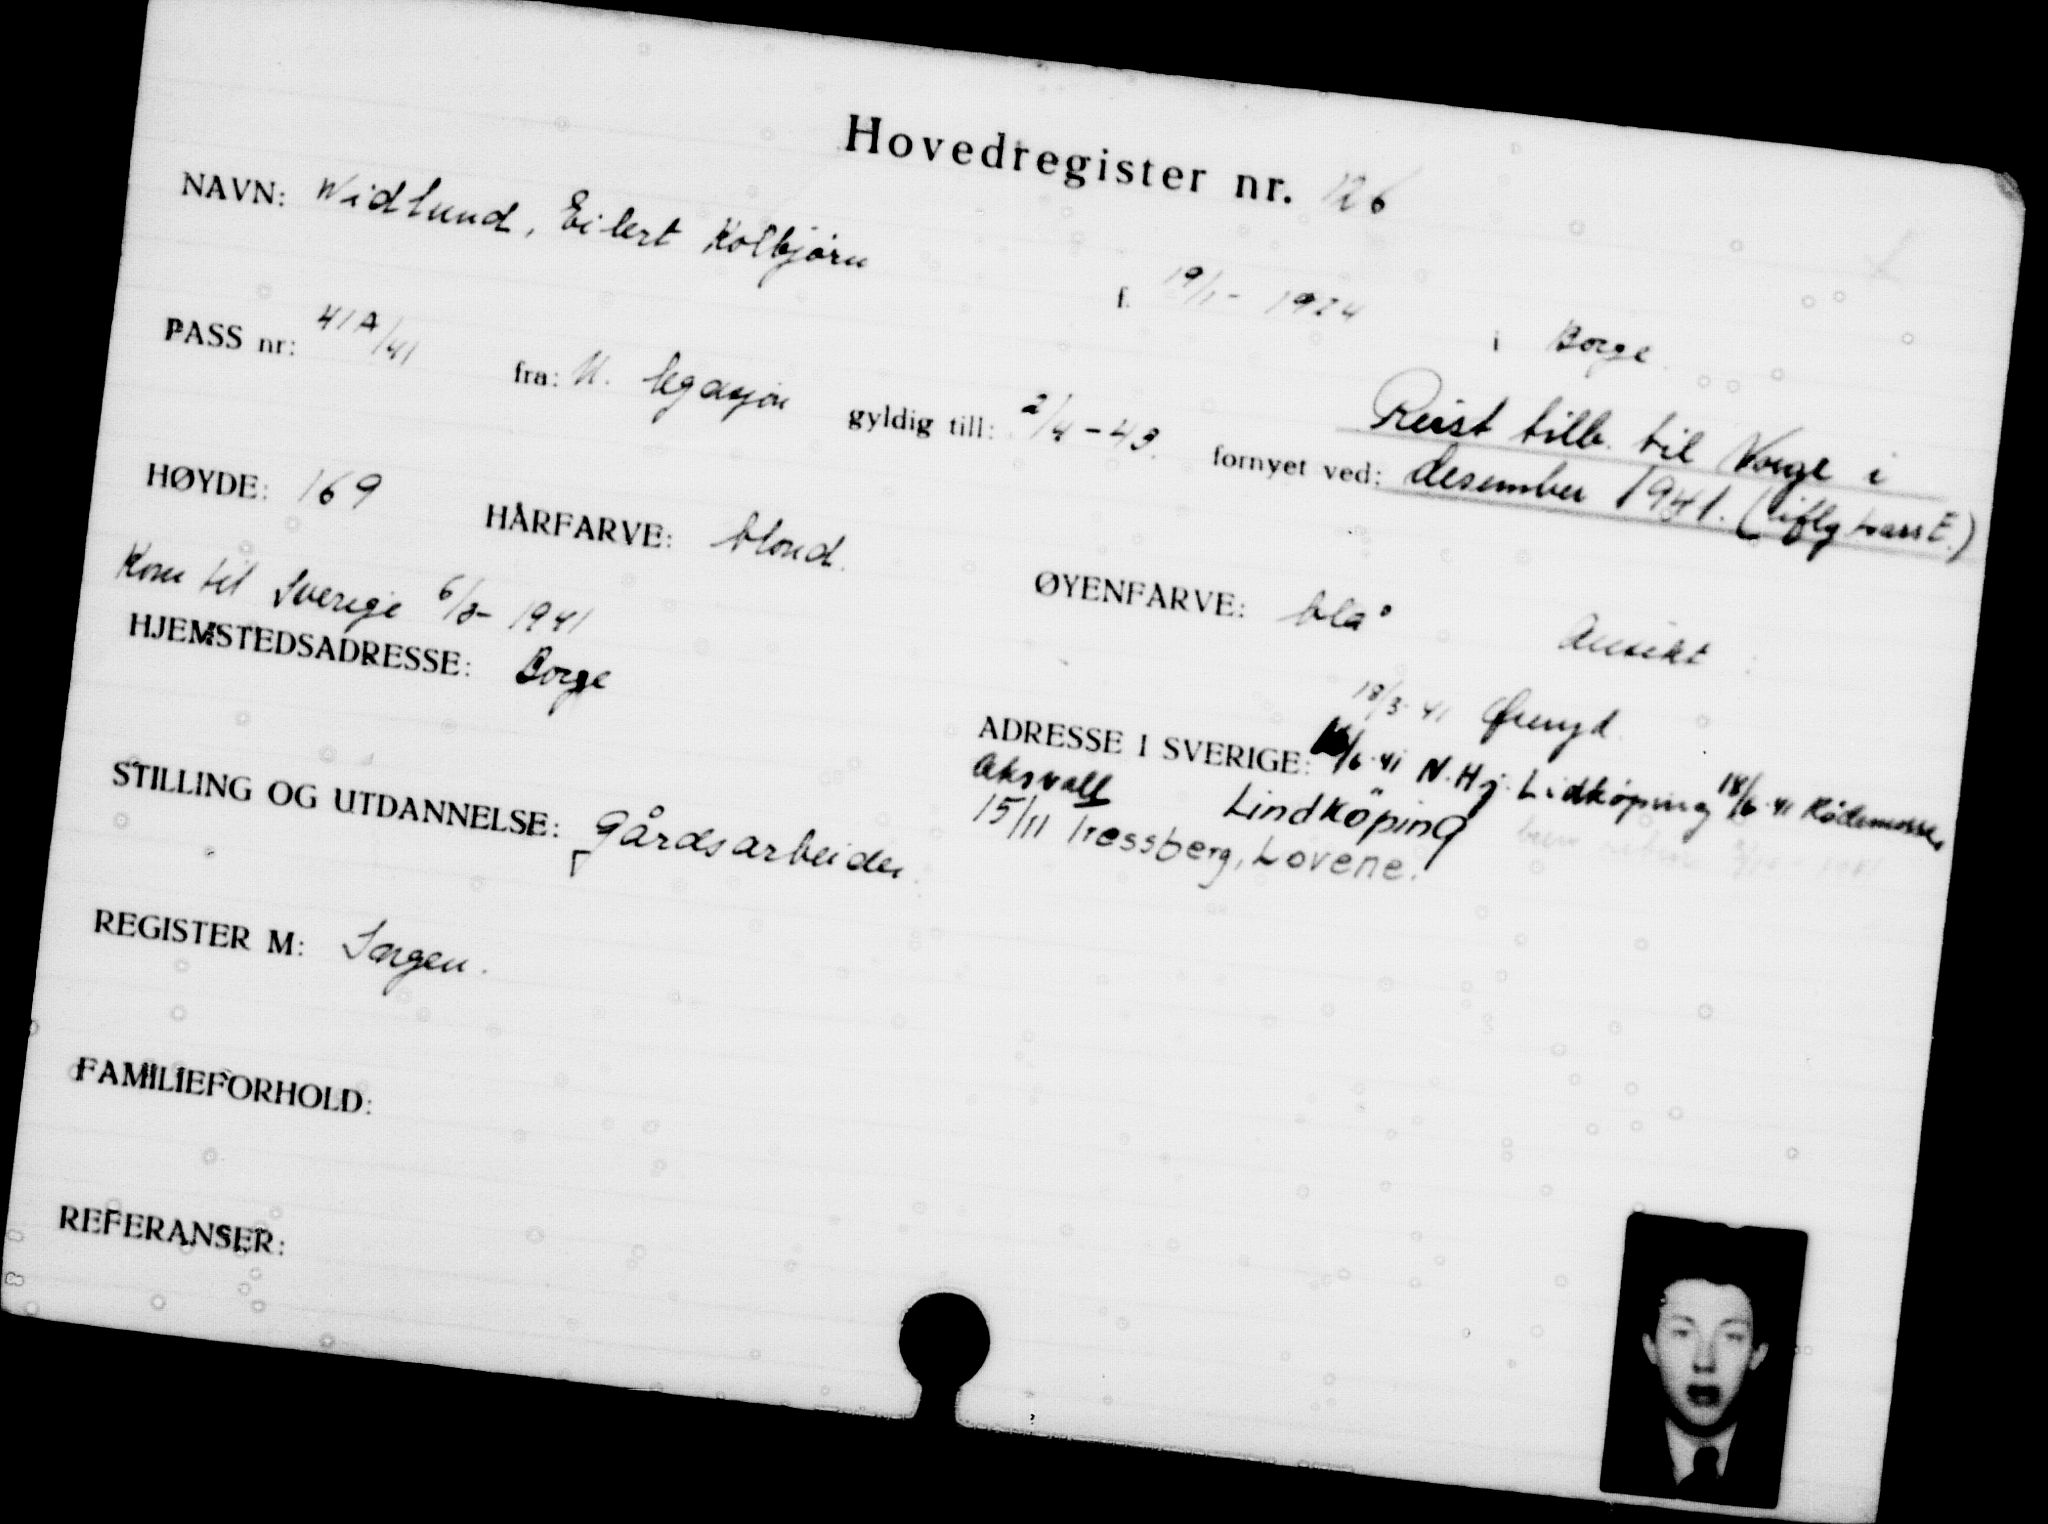 Hovedregister nr. 126
NAVN: Widlund, Eilert Kolbjørn f. 19/1- 1924 i Borge.
PASS nr: 41A/41 fra: N. legasjon gyldig till: 2/4-43. fornyet ved:
Reist tilb. til Norge i
desember 1941. (iflg pass E.)
HØYDE: 169 HÅRFARVE: blond. ØYENFARVE: blå Ansikt :
Kom til Sverige 6/3- 1941
HJEMSTEDSADRESSE: Borge
18/3-41 Øreryd.
ADRESSE I SVERIGE: /6-41 N.Hj. Lidköping 18/6-41 Rödemosse,
Aksvall Lindköping
15/11 Tressberg, Lovene.
STILLING OG UTDANNELSE: Gårdsarbeider.
REGISTER M:
FAMILIEFORHOLD:
REFERANSER: